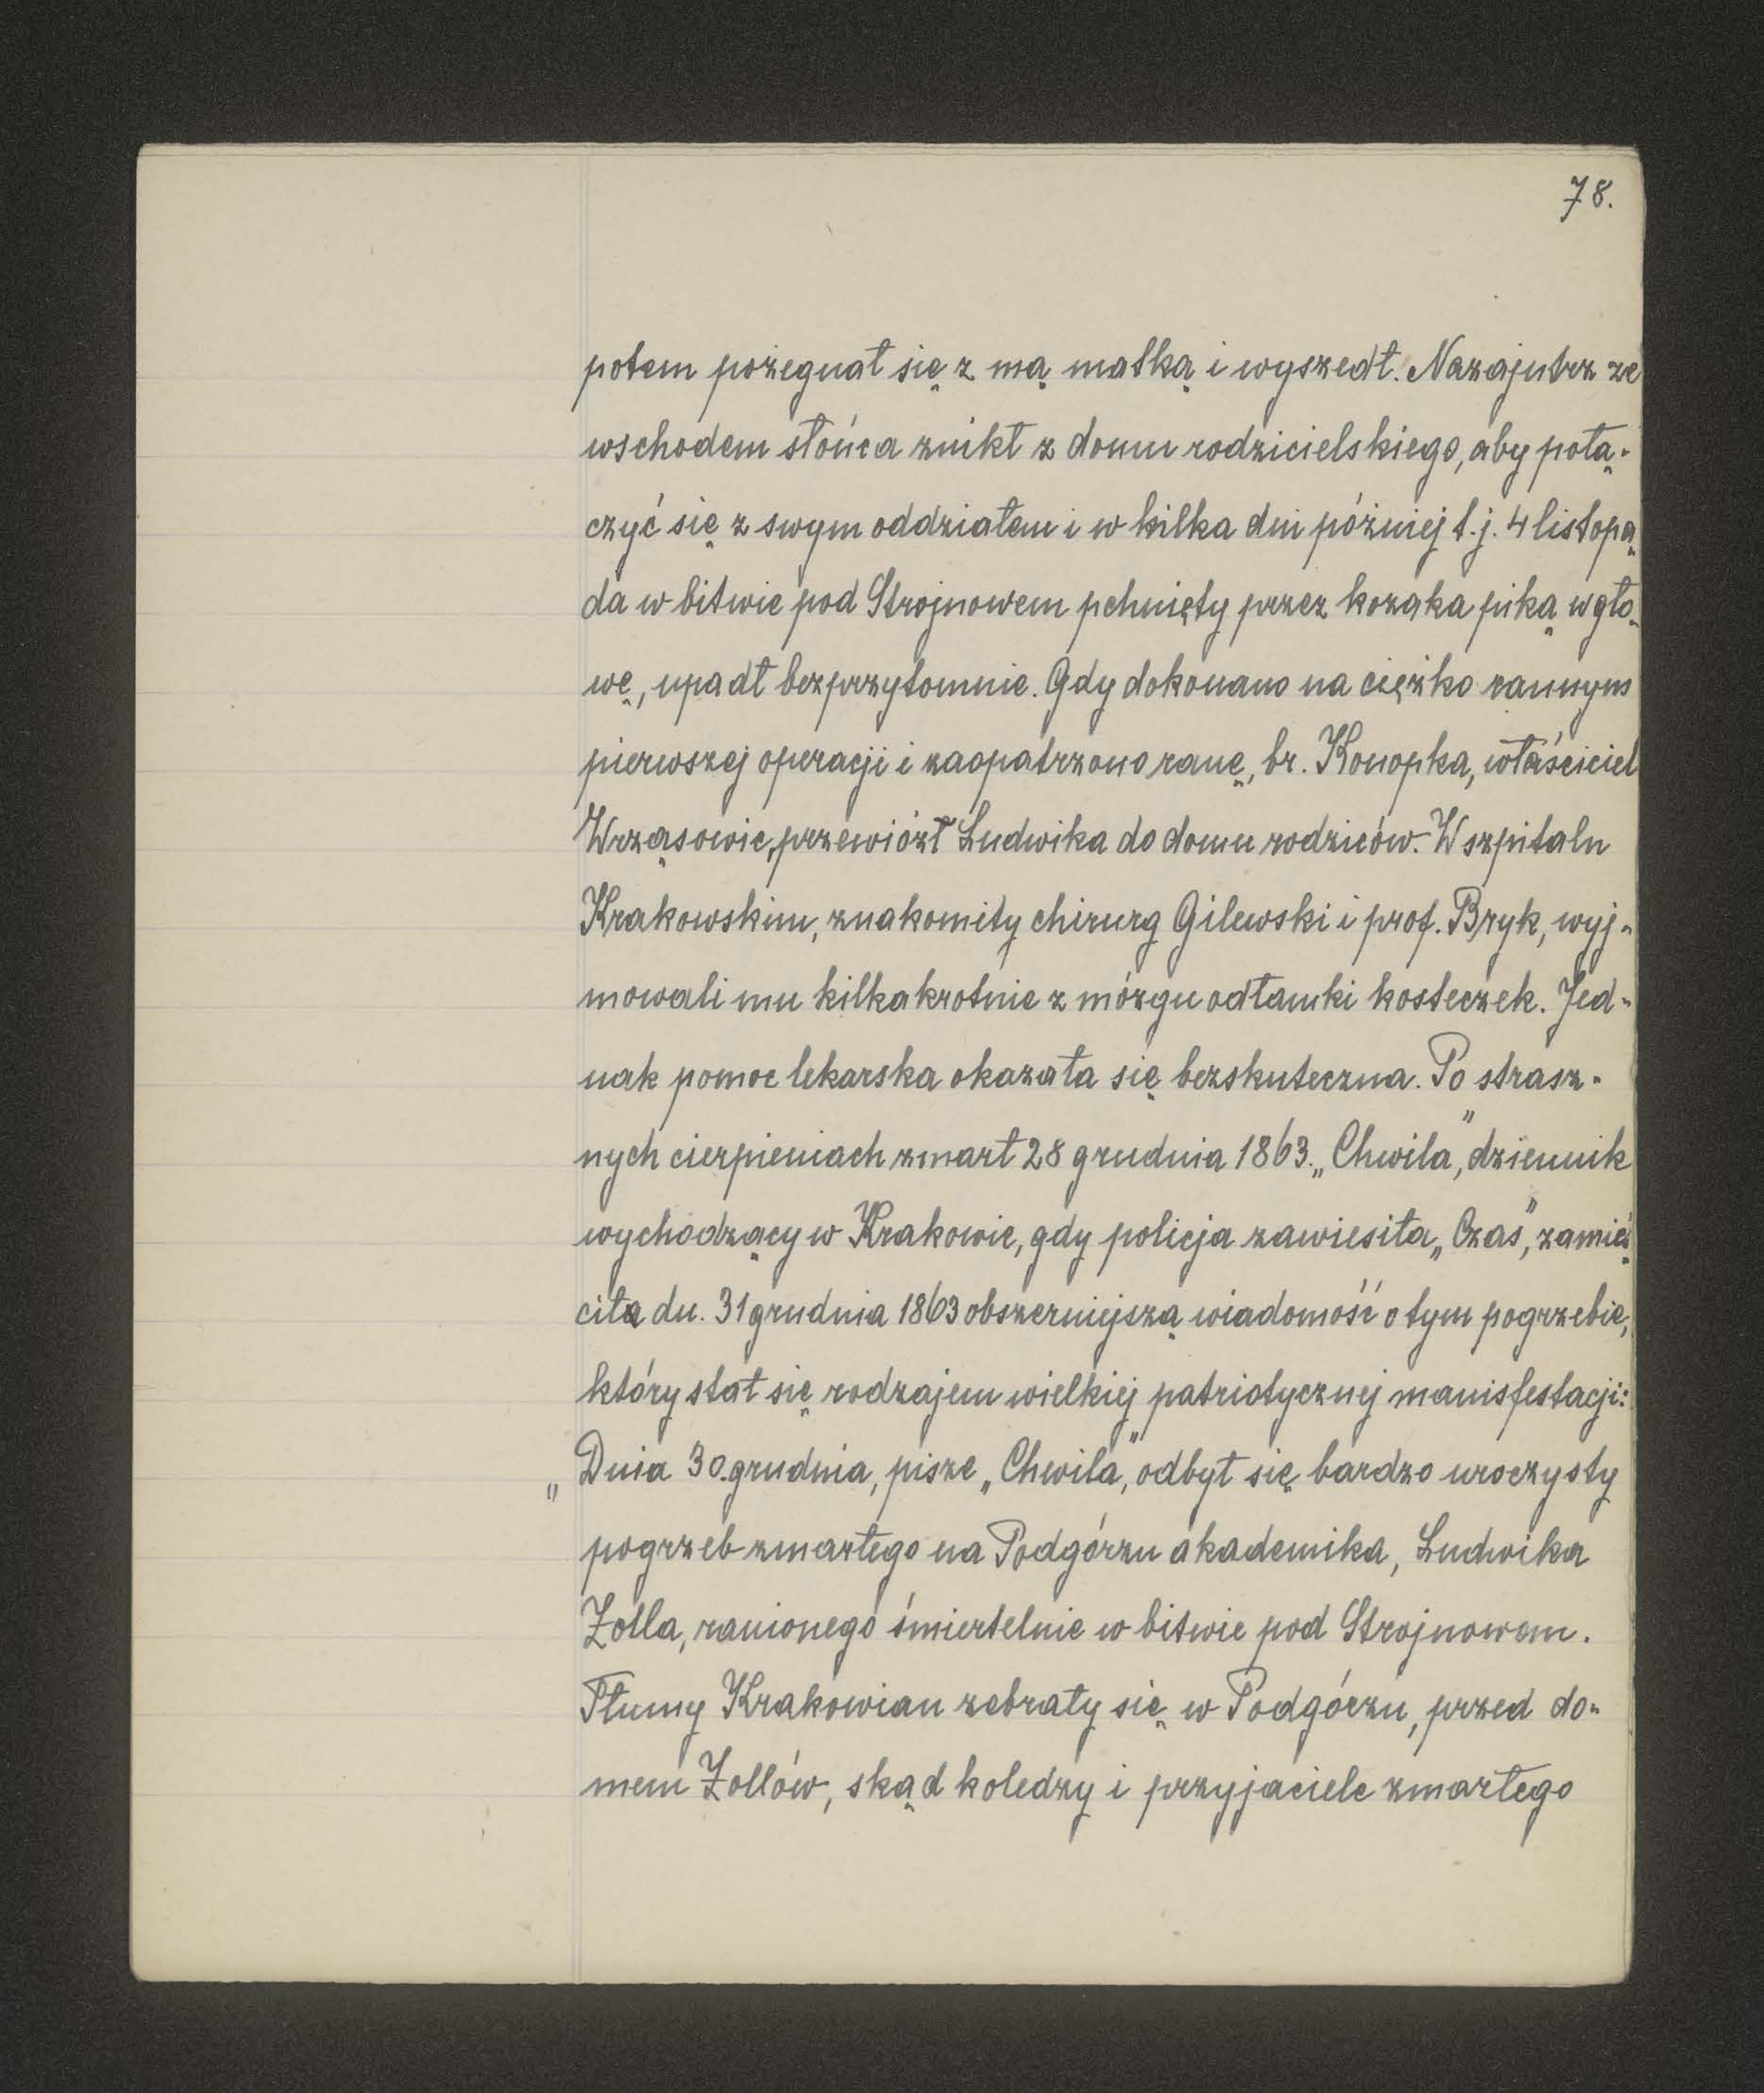 78.
potem pożegnał się z mą matką i wyszedł. Nazajutrz ze
wschodem słońca znikł z domu rodzicielskiego, aby połą-
czyć się z swym oddziałem i w kilka dni później t.j. 4 listopa-
da w bitwie pod Strojnowem pchnięty przez kozaka piką w gło-
wę, upadł bezprzytomnie. Gdy dokonano na ciężko rannym
pierwszej operacji i zaopatrzono ranę, br. Konopka, właściciel
Wrząsowic, przewiózł Ludwika do domu rodziców. W szpitalu
Krakowskim, znakomity chirurg Gilewski i prof. Bryk, wyj-
mowali mu kilkakrotnie z mózgu odłamki kosteczek. Jed-
nak pomoc lekarska okazała się bezskuteczna. Po strasz-
nych cierpieniach zmarł 28 grudnia 1863. „Chwila", dziennik
wychodzący w Krakowie, gdy policja zawiesiła „Czas", zamieś-
ciła dn. 31 grudnia 1863 obszerniejszą wiadomość o tym pogrzebie,
który stał się rodzajem wielkiej patriotycznej manisfestacji:
„Dnia 30. grudnia, pisze „Chwila", odbył się bardzo uroczysty
pogrzeb zmarłego na Podgórzu akademika, Ludwika
Zolla, ranionego śmiertelnie w bitwie pod Strojnowem.
Tłumy Krakowian zebrały się w Podgórzu, przed do-
mem Zollów, skąd koledzy i przyjaciele zmarłego